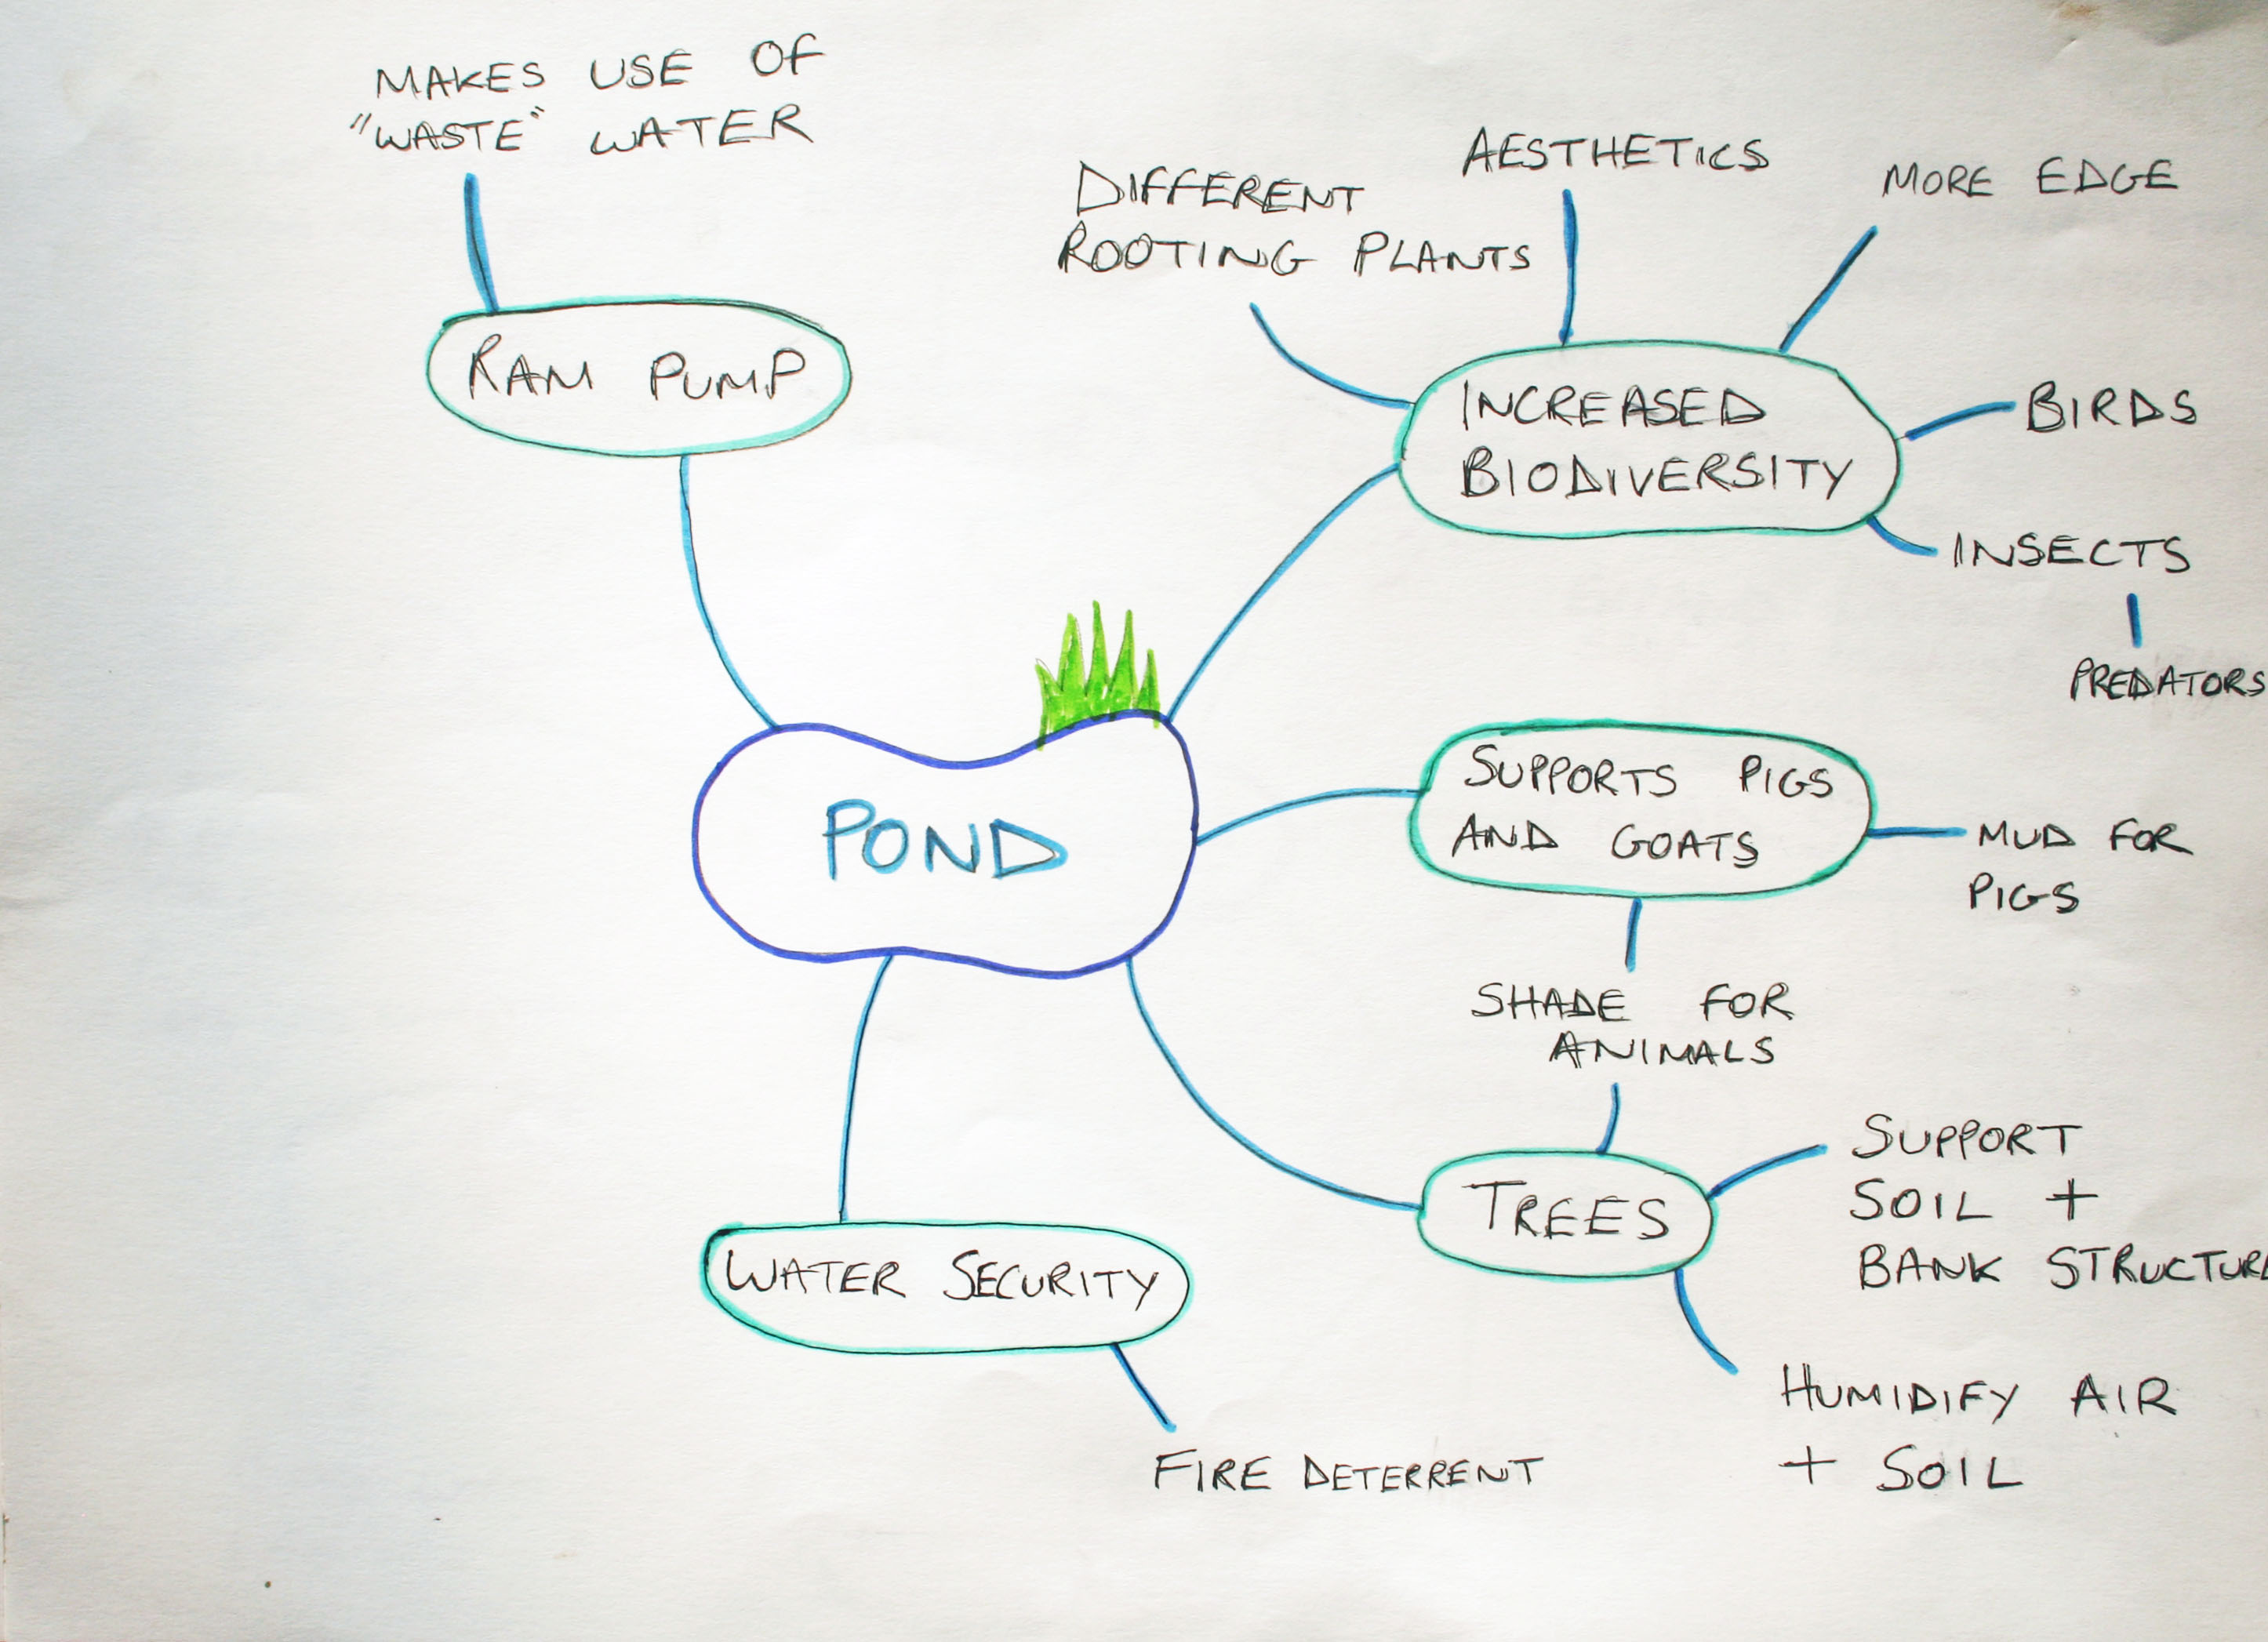 MAKES USE OF
"WASTE" WATER
RAM PUMP
DIFFERENT
ROOTING PLANTS
AESTHETICS
MORE EDGE
INCREASED
BIODIVERSITY
BIRDS
INSECTS
PREDATORS
POND
SUPPORTS PIGS
AND GOATS
MUD FOR
PIGS
SHADE FOR
ANIMALS
TREES
SUPPORT
SOIL +
BANK STRUCTURE
HUMIDIFY AIR
+ SOIL
WATER SECURITY
FIRE DETERRENT